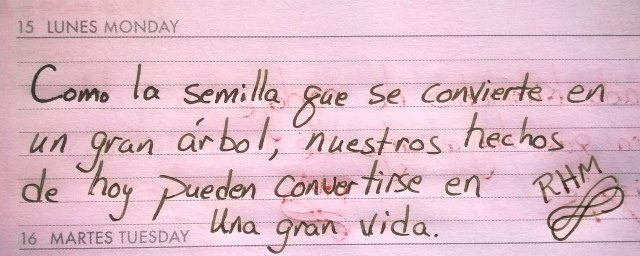 15 LUNES MONDAY
Como la semilla que se convierte en
un gran árbol, nuestros hechos
de hoy pueden convertirse en
RHM
una gran vida.
16 MARTES TUESDAY